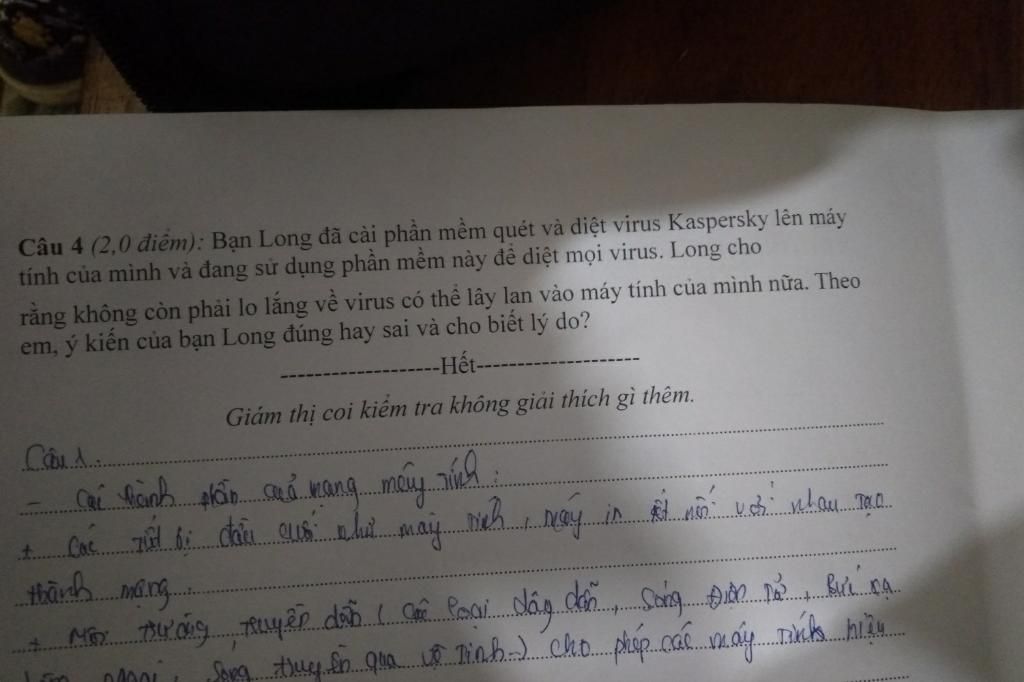 Câu 4 (2,0 điểm): Bạn Long đã cài phần mềm quét và diệt virus Kaspersky lên máy
tính của mình và đang sử dụng phần mềm này để diệt mọi virus. Long cho
rằng không còn phải lo lắng về virus có thể lây lan vào máy tính của mình nữa. Theo
em, ý kiến của bạn Long đúng hay sai và cho biết lý do?
-------------------Hết--------------------
Giám thị coi kiểm tra không giải thích gì thêm.
Câu 1.
- Các thành phần của mạng máy tính:
+ Các thiết bị đầu cuối như máy tính, máy in kết nối với nhau tạo
thành mạng.
+ Môi trường truyền dẫn (các loại dây dẫn, sóng điện từ, bức xạ
sóng truyền qua vệ tinh) cho phép các máy tính hiệu